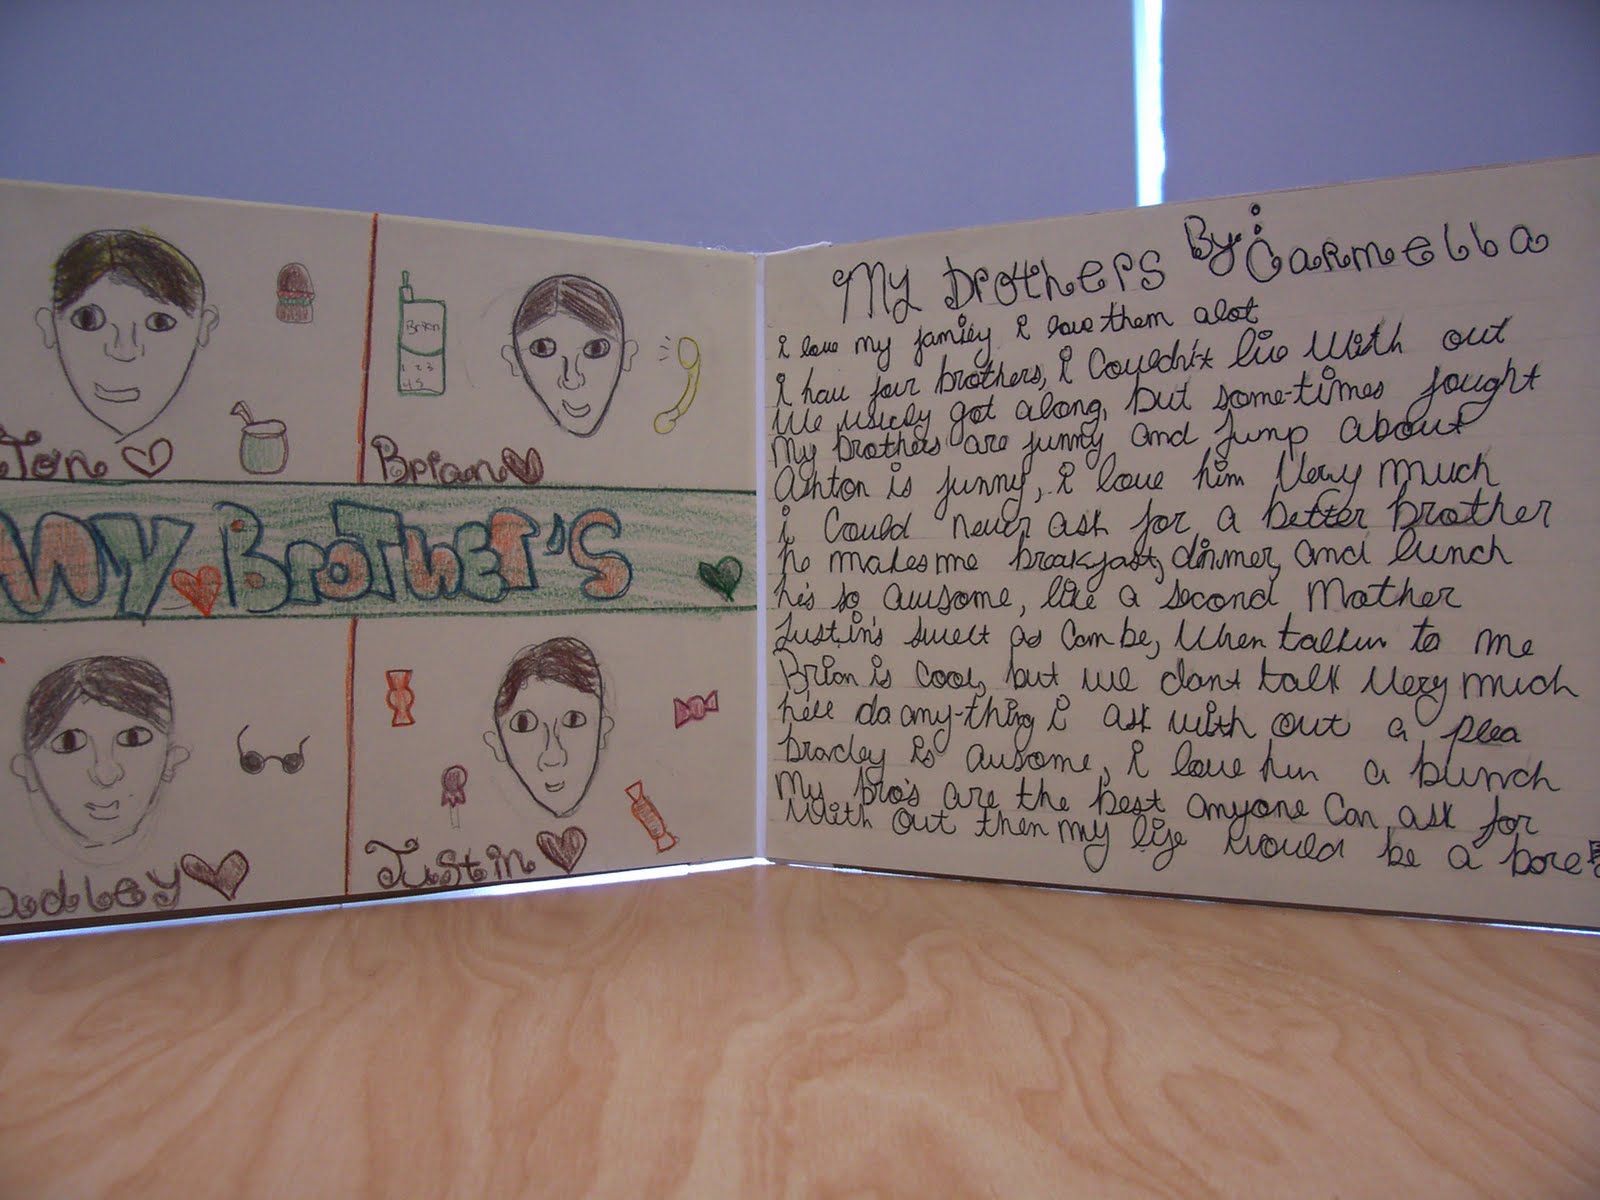 Ton
Brian
1 2 3
4 5
Brian
MY BroTHer'S
adley
Justin
My brothers By: Carmella
i love my family i love them alot
i hav four brothers, i couldn't liv with out
We usicly got along, but some-times fought
My brothers are funny and jump about
Ashton is funny, i love him Very much
i could never ask for a better brother
he makes me breakfast, dinner, and lunch
he's so awsome, like a second Mother
Justin's sweet as can be, When talkin to me
Brian is cool, but we dont talk Very much
he'll do any-thing i ask with out a plea
bradley is awsome, i love him a bunch
My bro's are the best anyone can ask for
With out them my life would be a bore